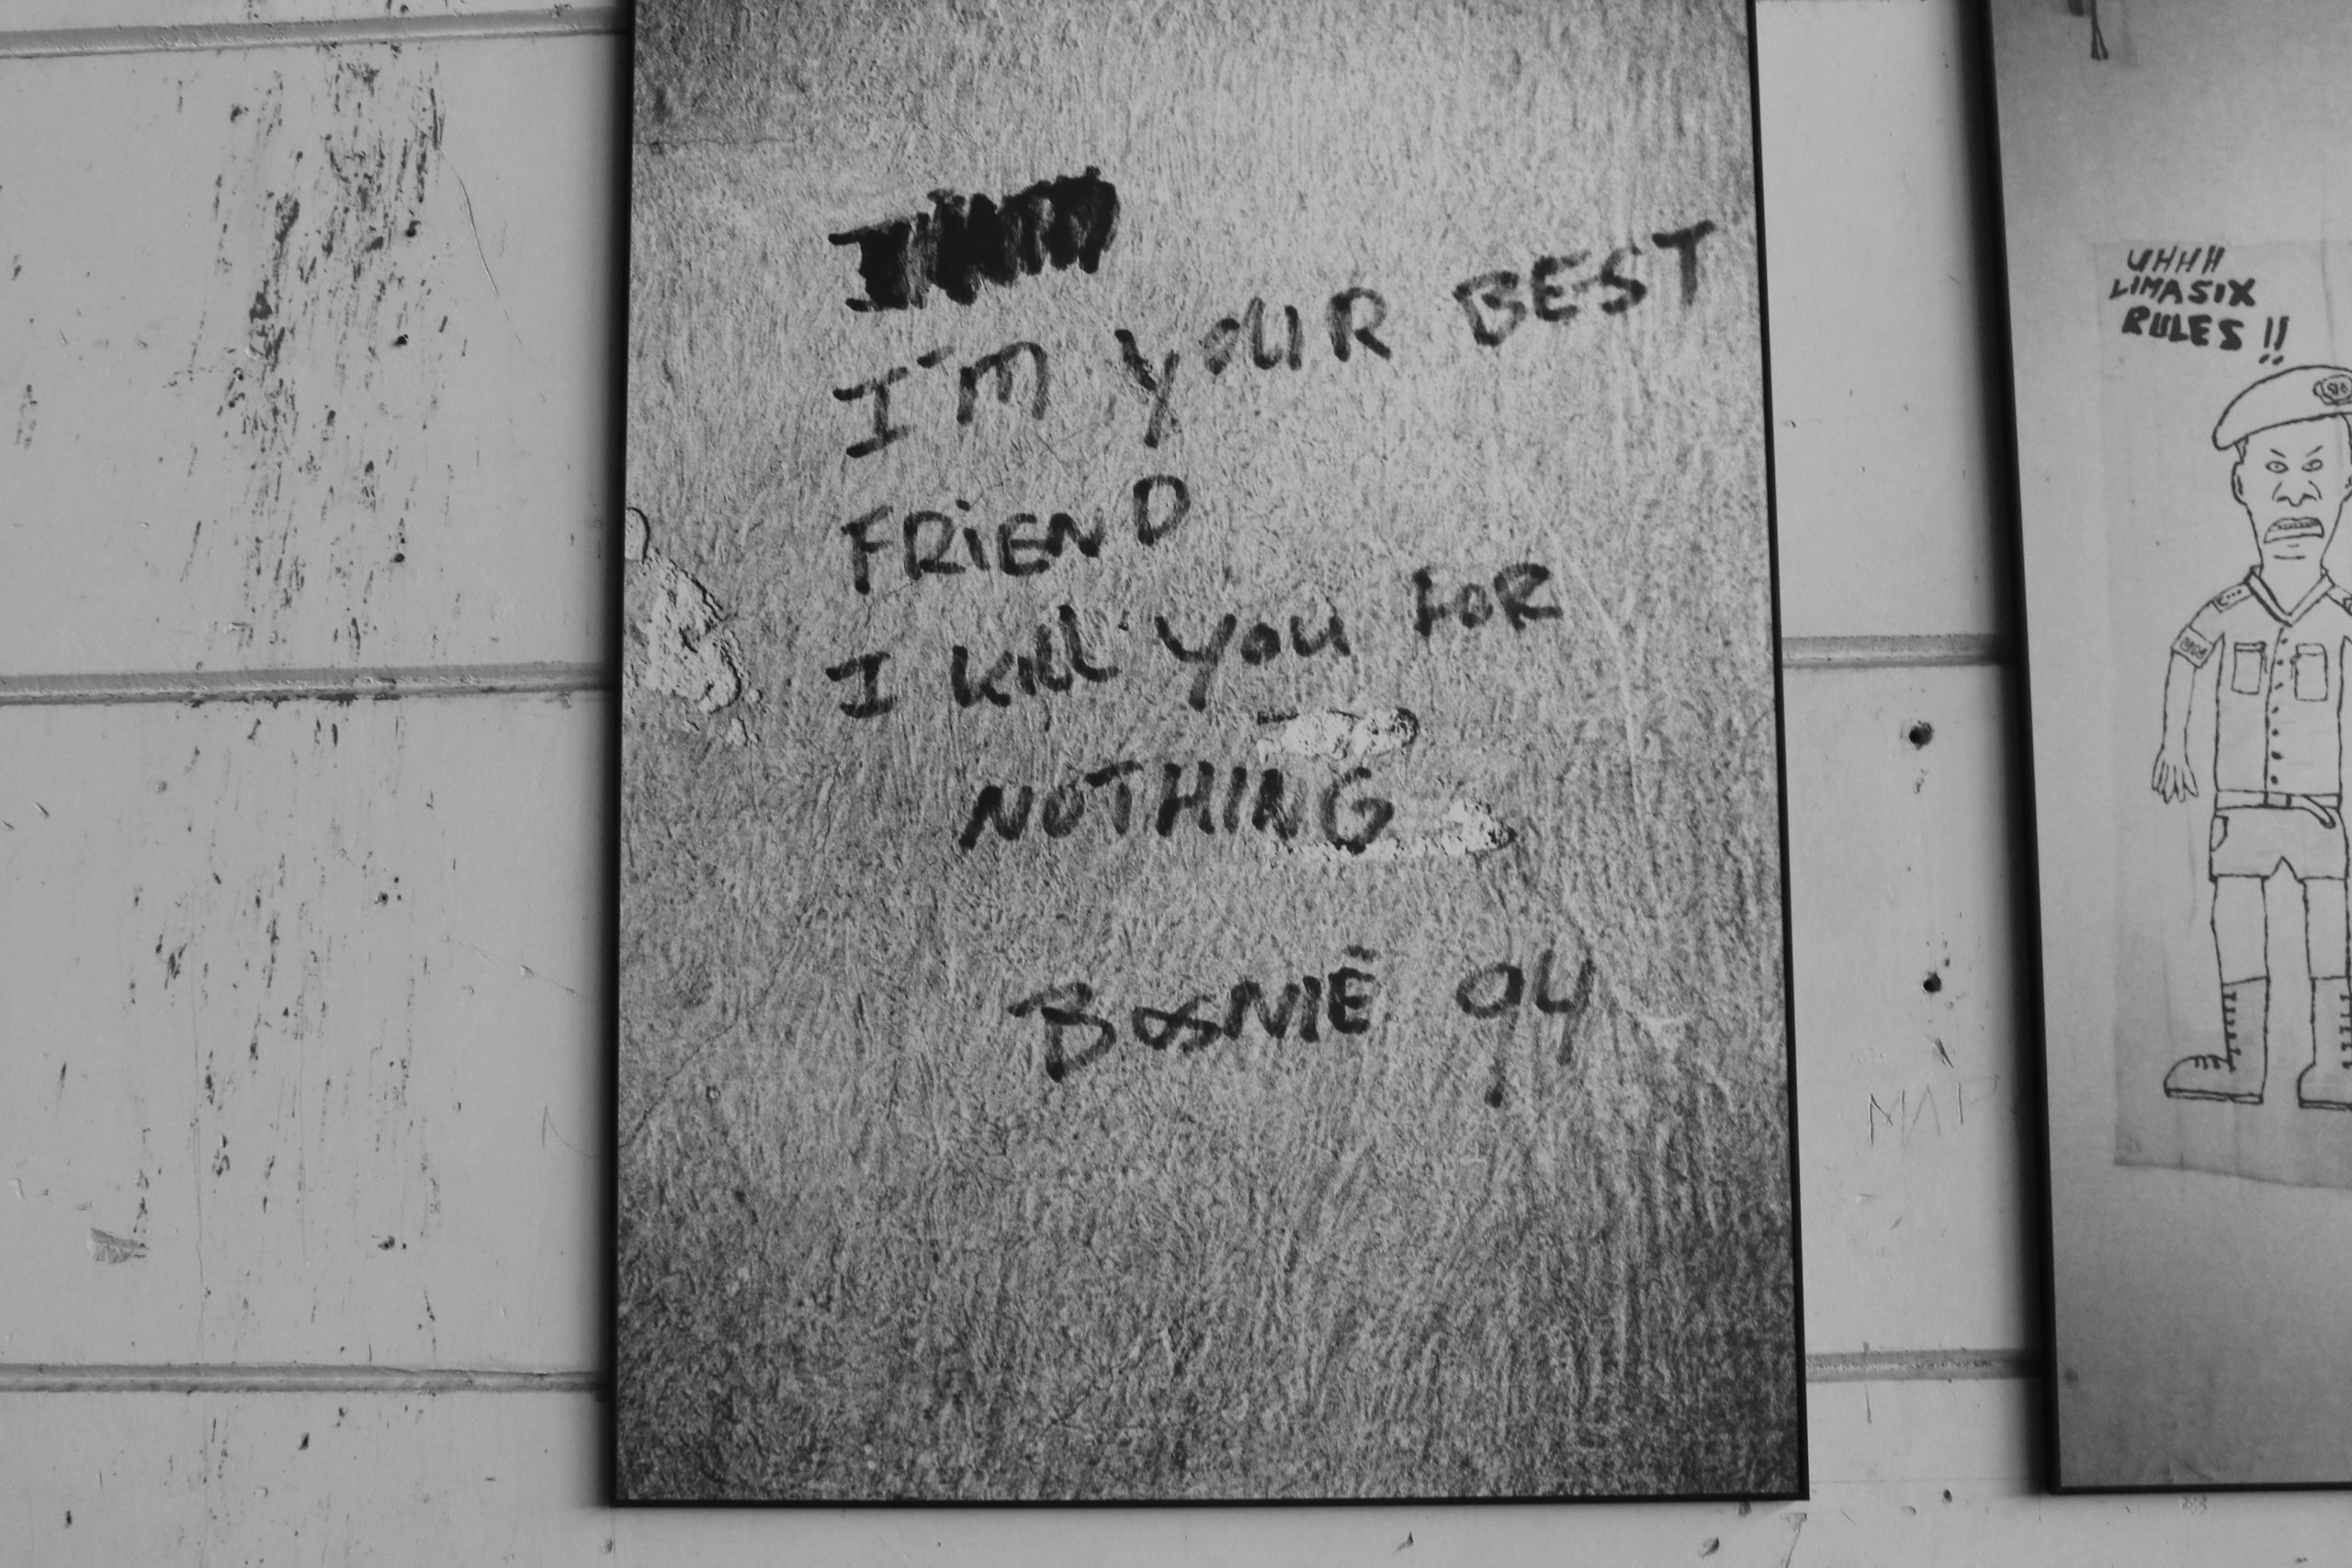 I'M YOUR BEST
FRiEND
I kill You FOR
NOTHING
BOSNIË 94
UHHH
LIMASIX
RULES !!
MAP